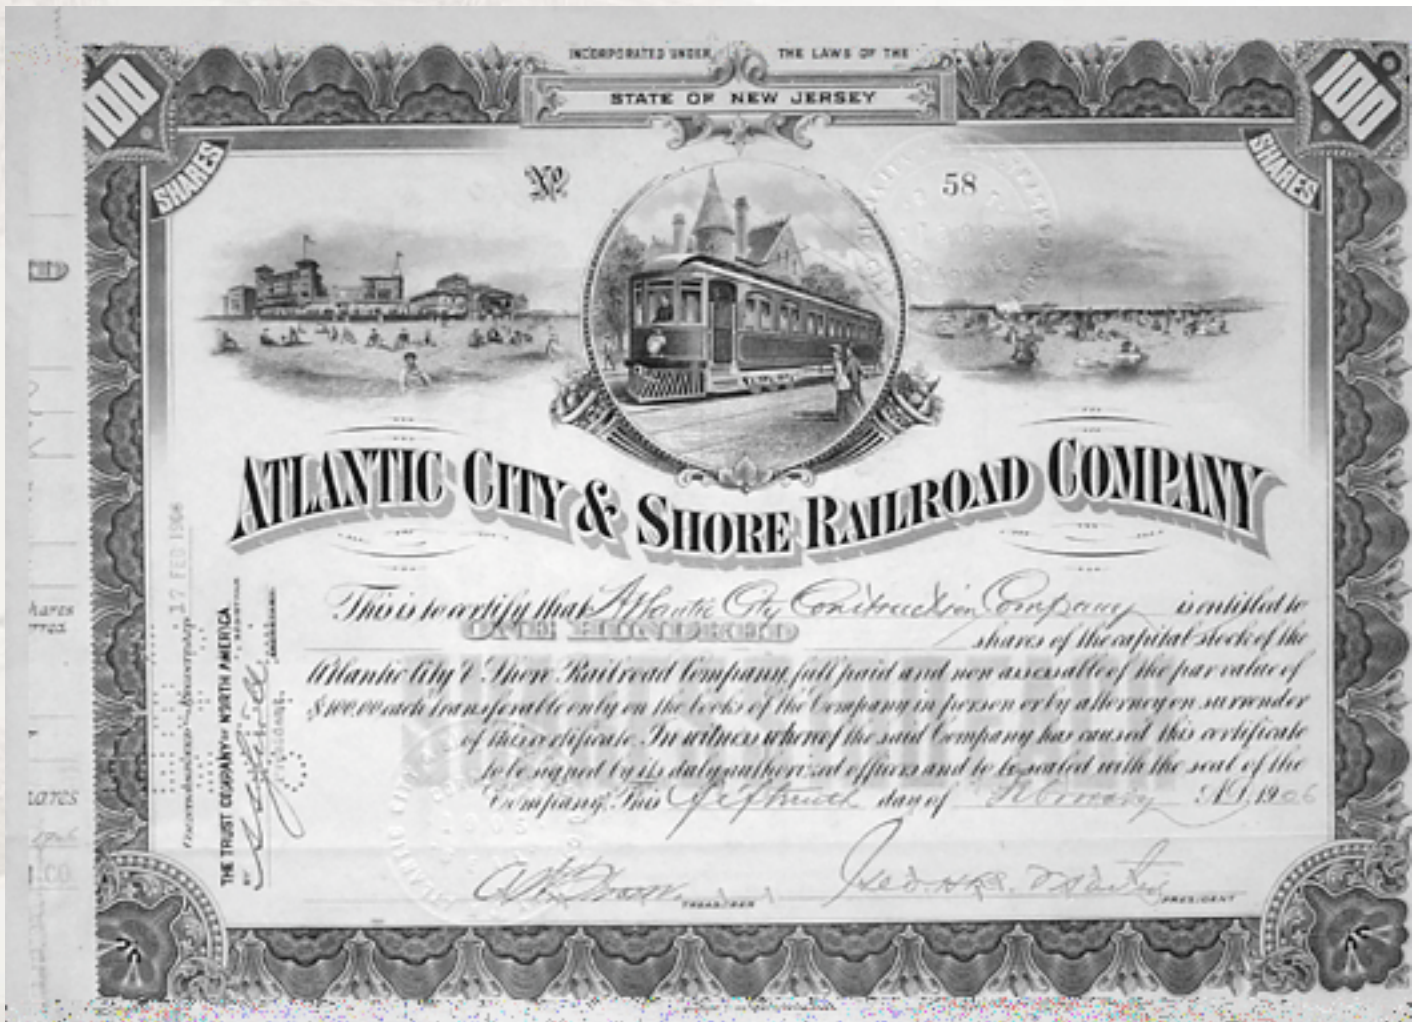 INCORPORATED UNDER THE LAWS OF THE
STATE OF NEW JERSEY
100
100
SHARES
SHARES
No
58
ATLANTIC CITY & SHORE RAILROAD COMPANY
This is to certify that Atlantic City Construction Company is entitled to
ONE HUNDRED shares of the capital stock of the
Atlantic City & Shore Railroad Company, full paid and non assessable of the par value of
$100.00 each transferable only on the books of the Company in person or by attorney on surrender
of this certificate. In witness whereof the said Company has caused this certificate
to be signed by its duly authorized officers and to be sealed with the seal of the
Company, this fifteenth day of February A.D. 1906
TREASURER
PRESIDENT
17 FEB 1906
THE TRUST COMPANY OF NORTH AMERICA
BY
hares